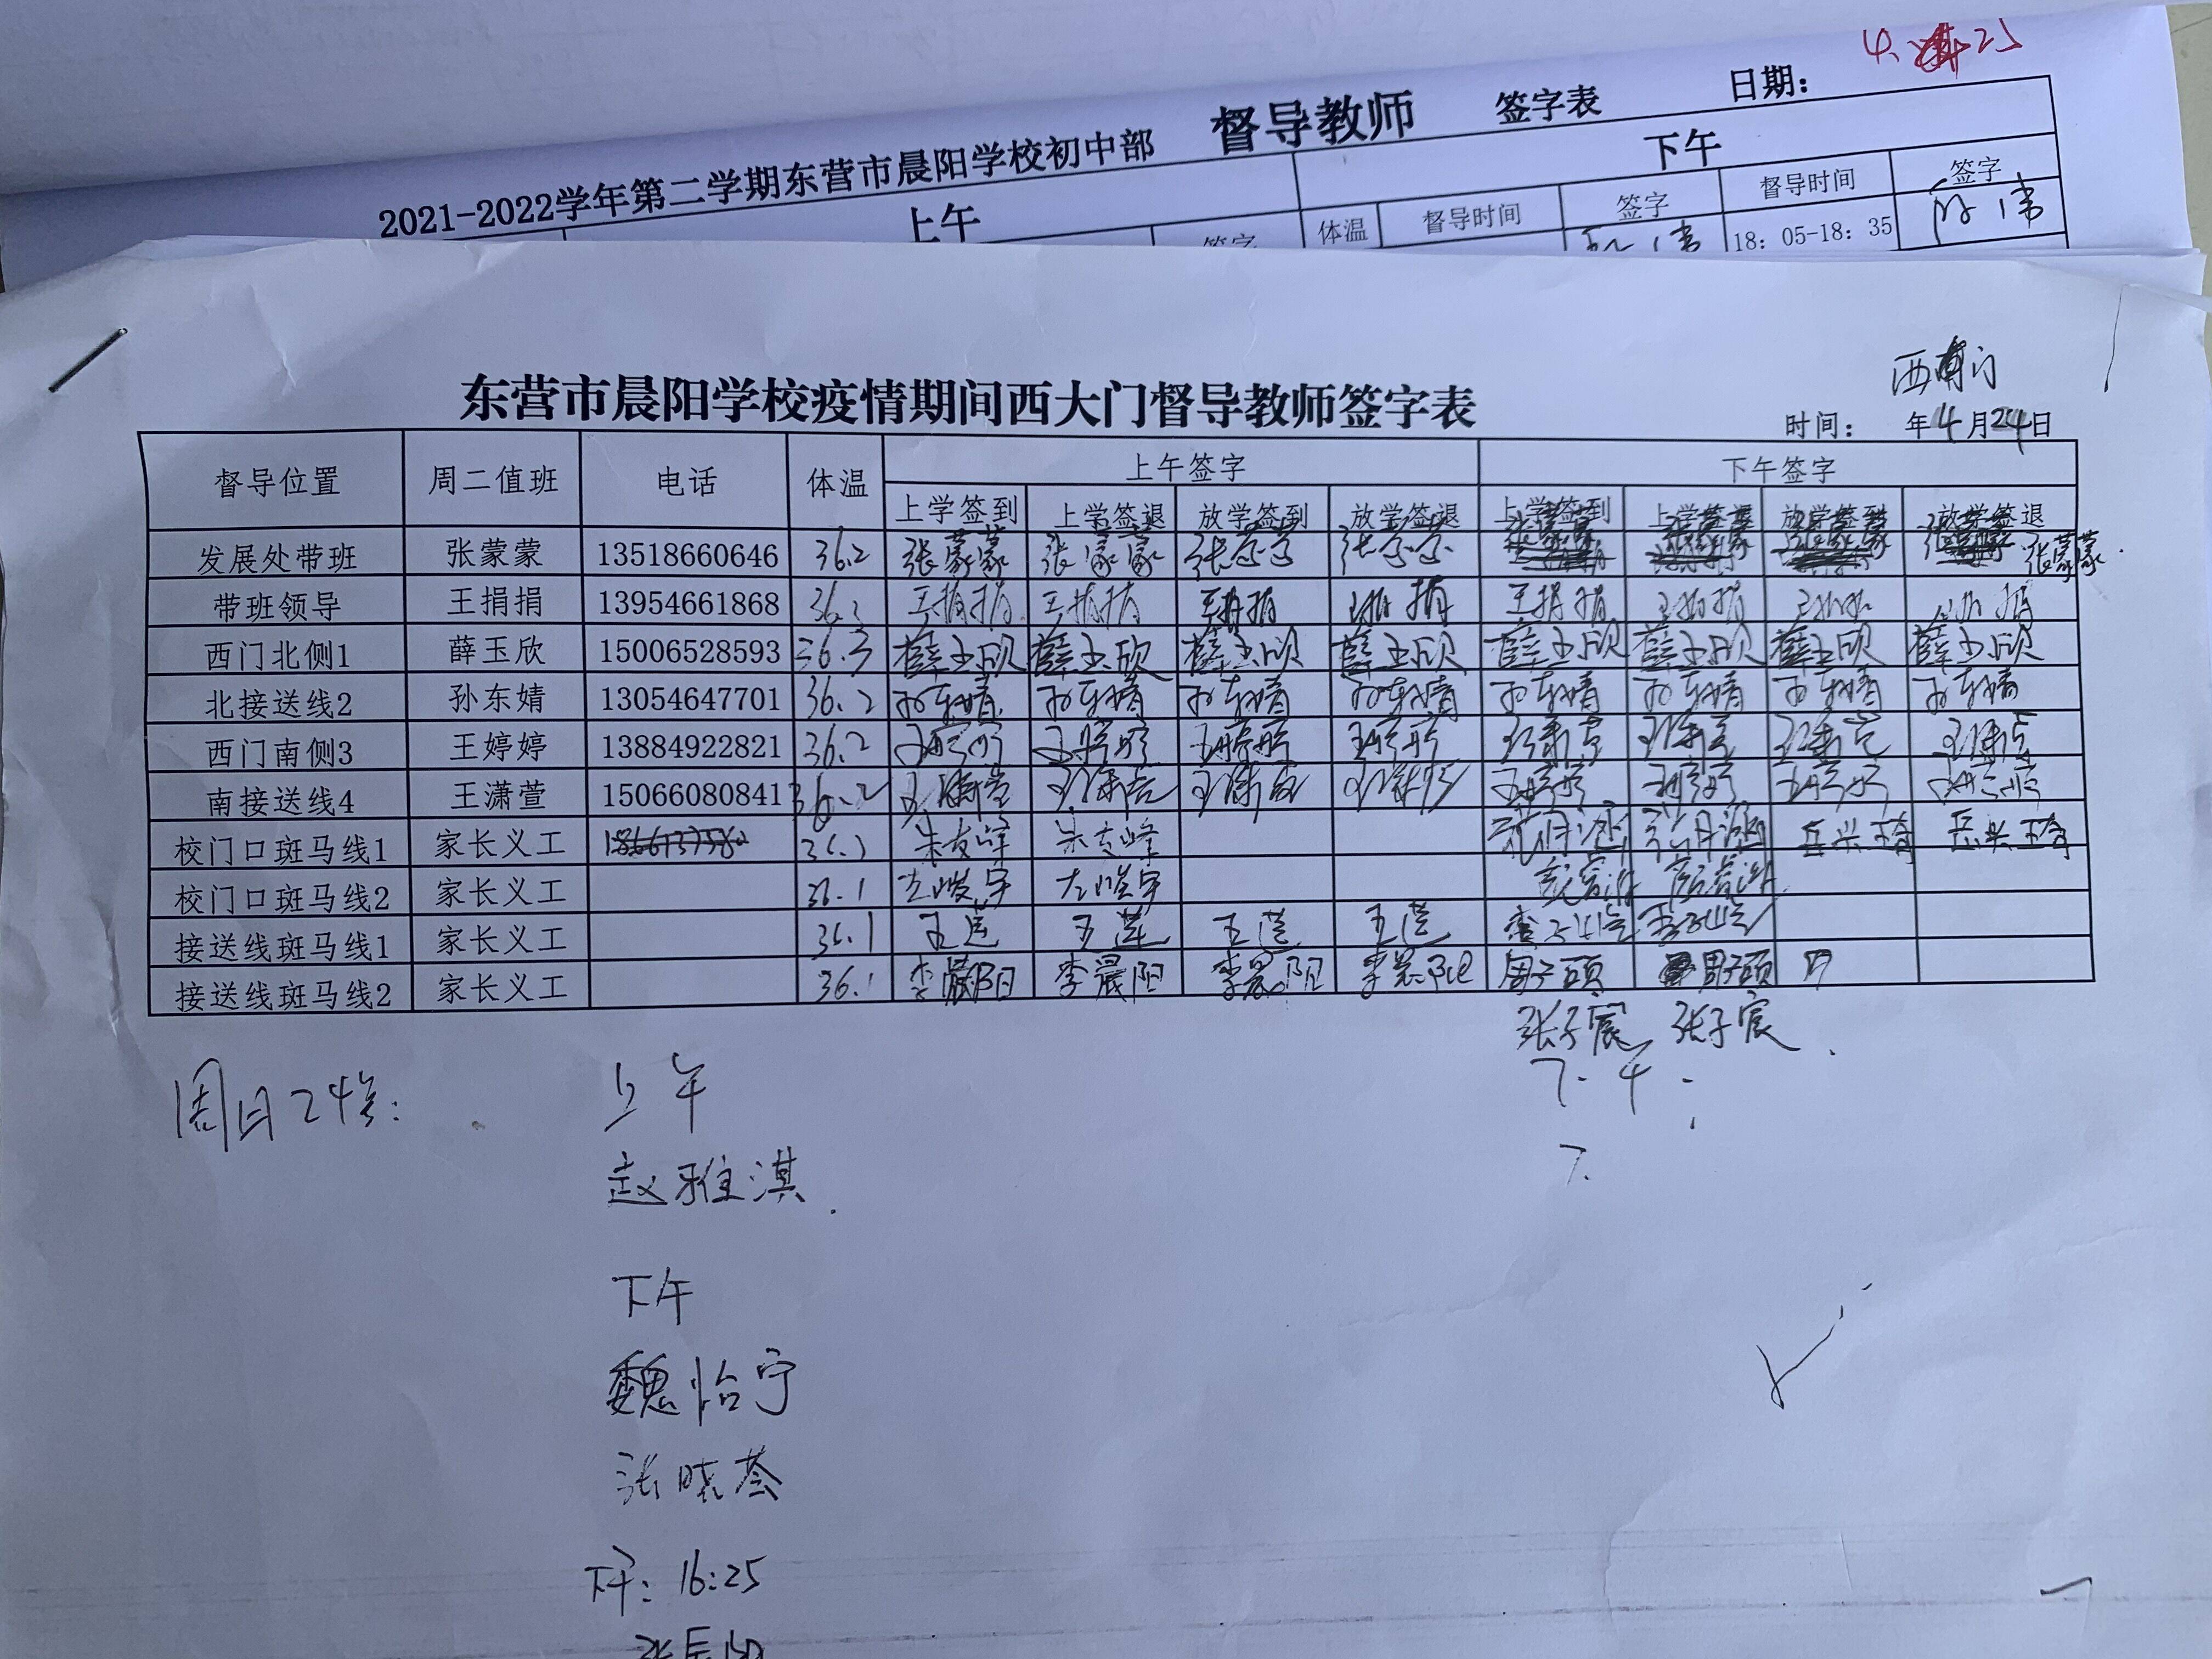 4. 25
2021-2022学年第二学期东营市晨阳学校初中部 督导教师 签字表 日期：
上午 下午
签字 体温 督导时间 签字 督导时间 签字
18：05-18：35
东营市晨阳学校疫情期间西大门督导教师签字表
时间： 年4月24日
督导位置 周二值班 电话 体温 上午签字 下午签字
上学签到 上学签退 放学签到 放学签退 上学签到 上学签退 放学签到 放学签退
发展处带班 张蒙蒙 13518660646 36.2 张蒙蒙 张蒙蒙 张蒙蒙
带班领导 王捐捐 13954661868 王捐捐 王捐捐 王捐捐 王捐捐 王捐捐 王捐捐
西门北侧1 薛玉欣 15006528593 36.3 薛玉欣 薛玉欣 薛玉欣 薛玉欣 薛玉欣 薛玉欣 薛玉欣 薛玉欣
北接送线2 孙东婧 13054647701 36.2 孙东婧 孙东婧 孙东婧 孙东婧 孙东婧 孙东婧 孙东婧 孙东婧
西门南侧3 王婷婷 13884922821 36.2 王婷婷 王婷婷 王婷婷 王婷婷 王潇萱 王潇萱 王潇萱 王潇萱
南接送线4 王潇萱 15066080841 36.2 王潇萱 王潇萱 王潇萱 王潇萱 王婷婷 王婷婷 王婷婷 王婷婷
校门口斑马线1 家长义工 朱友峰 朱友峰
校门口斑马线2 家长义工 36.1 左峻宇 左峻宇
接送线斑马线1 家长义工 36.1 王莲 王莲 王莲 王莲
接送线斑马线2 家长义工 36.1 李晨阳 李晨阳 李晨阳 李晨阳 周子硕 周子硕
张子宸 张子宸
周日24号： 上午 下午
赵雅淇
下午
魏怡宁
张晓荟
下午：16:25